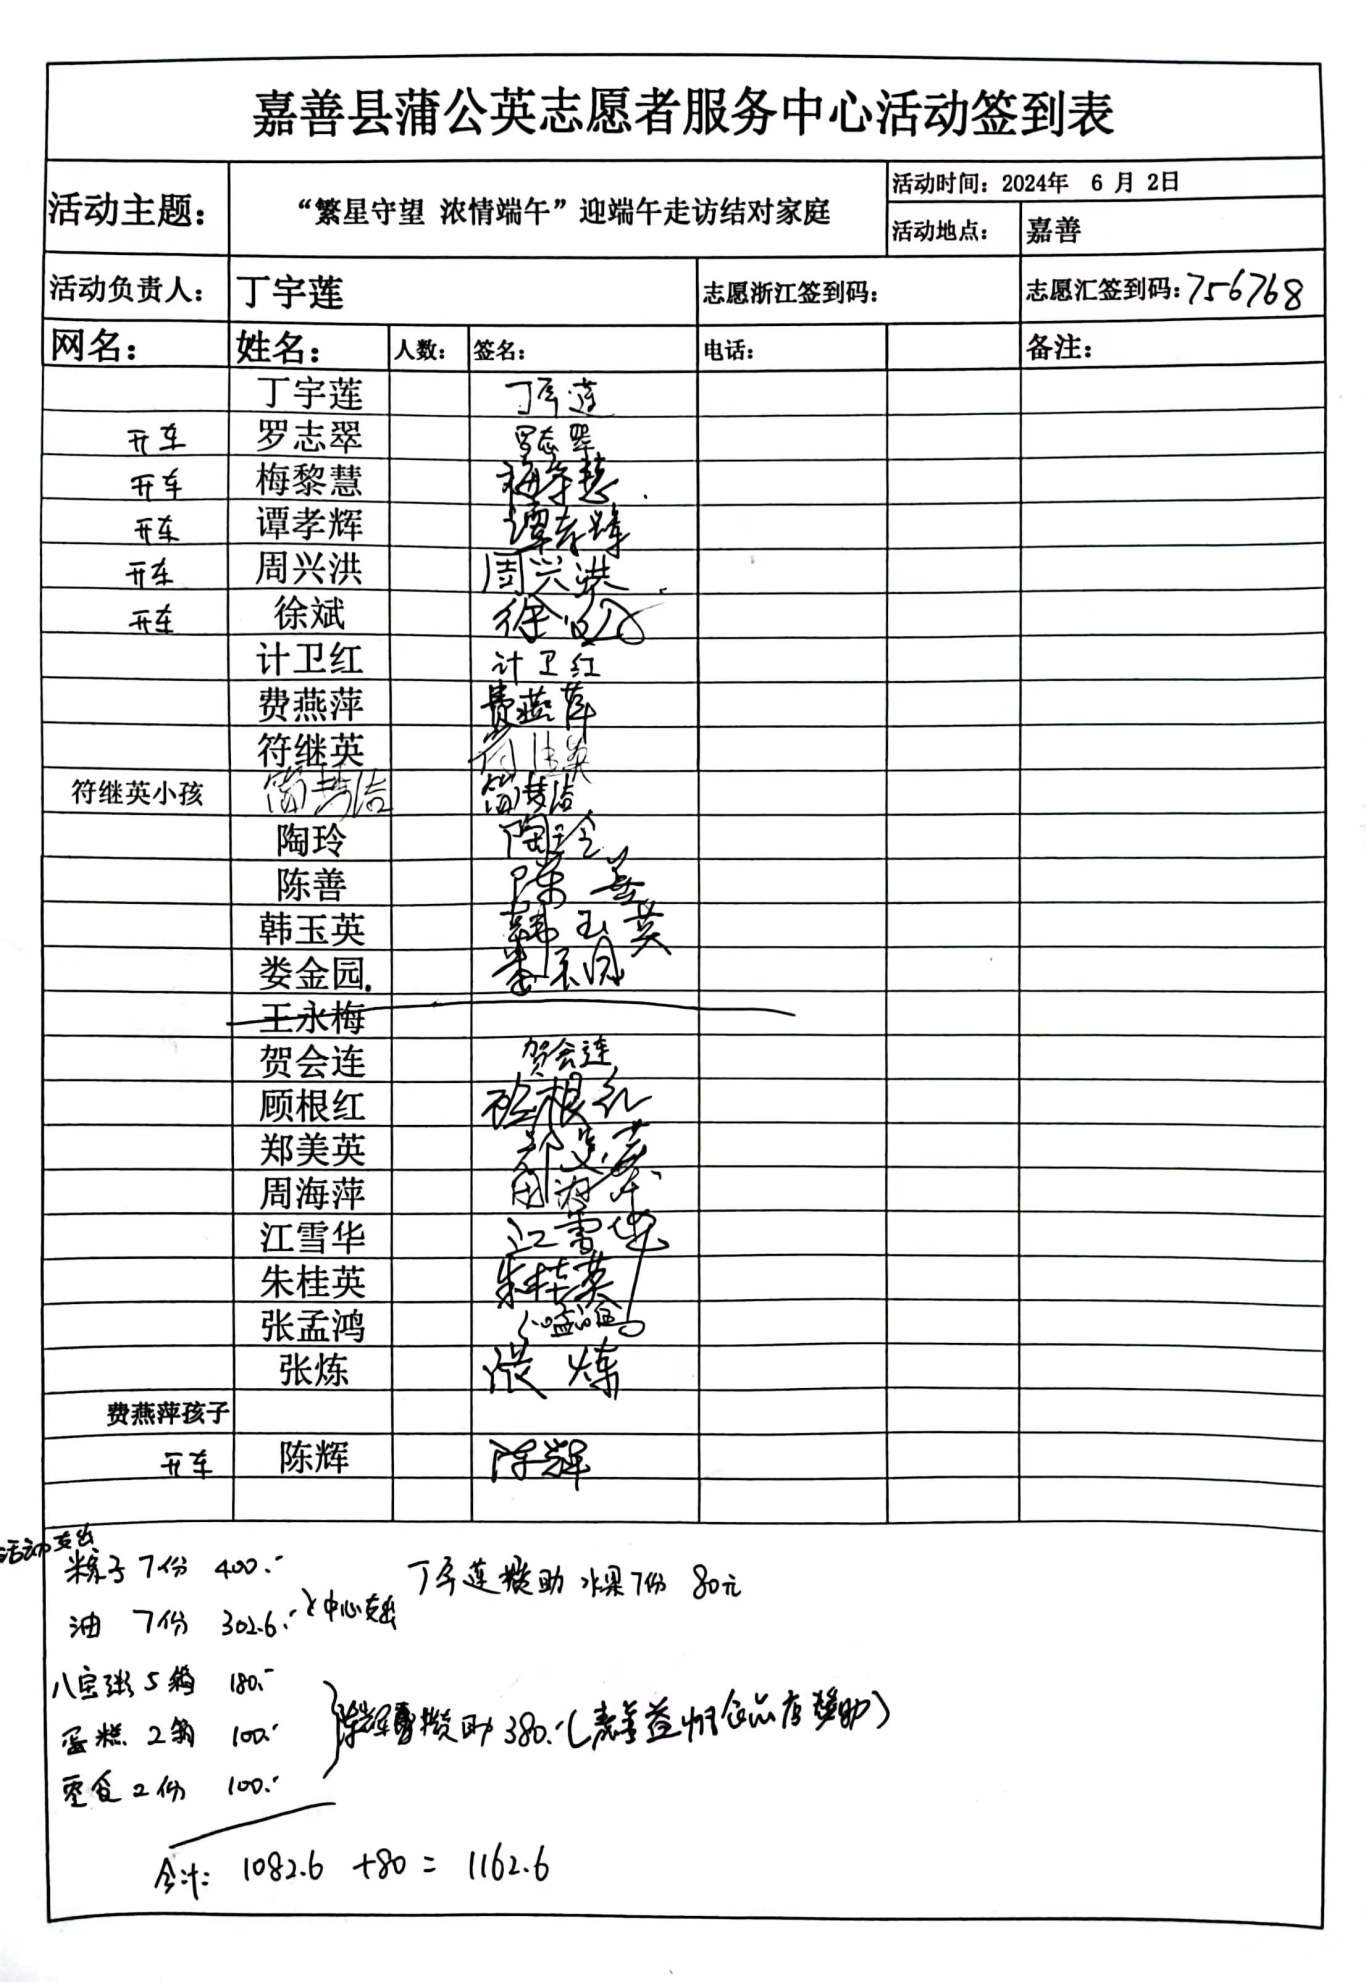 嘉善县蒲公英志愿者服务中心活动签到表
活动主题： “繁星守望 浓情端午”迎端午走访结对家庭 活动时间：2024年 6 月 2日
活动地点： 嘉善
活动负责人： 丁宇莲 志愿浙江签到码： 志愿汇签到码：756768
网名： 姓名： 人数： 签名： 电话： 备注：
丁宇莲 丁宇莲
开车 罗志翠 罗志翠
开车 梅黎慧 梅黎慧
开车 谭孝辉 谭孝辉
开车 周兴洪 周兴洪
开车 徐斌 徐斌
计卫红 计卫红
费燕萍 费燕萍
符继英 符继英
符继英小孩
陶玲 陶玲
陈善 陈善
韩玉英 韩玉英
娄金园. 娄金园
王永梅
贺会连 贺会连
顾根红 顾根红
郑美英 郑美英
周海萍 周海萍
江雪华 江雪华
朱桂英 朱桂英
张孟鸿 张孟鸿
张炼 张炼
费燕萍孩子
开车 陈辉 陈辉
活动支出
粽子7份 400.- 丁宇莲赞助 水果7份 80元
油 7份 302.6.- 中心支出
八宝粥5箱 180.-
蛋糕 2箱 100.- 陈辉赞助380.-(嘉善益州食品店赞助)
零食2份 100.-
合计: 1082.6 +80 = 1162.6